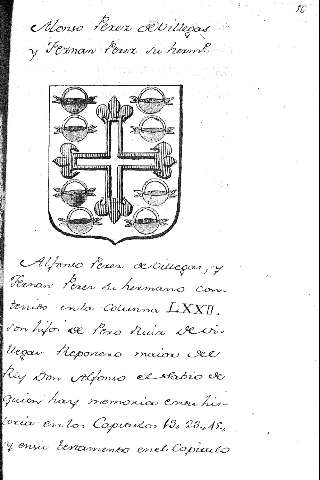 56
Alonso Perez de Villegas
y Fernan Perez su herm.º
Alfonso Perez de Villegas, y
Fernan Perez su hermano con-
tenido en la Columna LXXII.
son hijos de Pero Ruiz de Vi-
llegas Reportero maior del
Rey Don Alfonso el Sabio de
quien hay memoria en su his-
toria en los Capitulos 19, 23, 45,
y en su testamento en el Capitulo